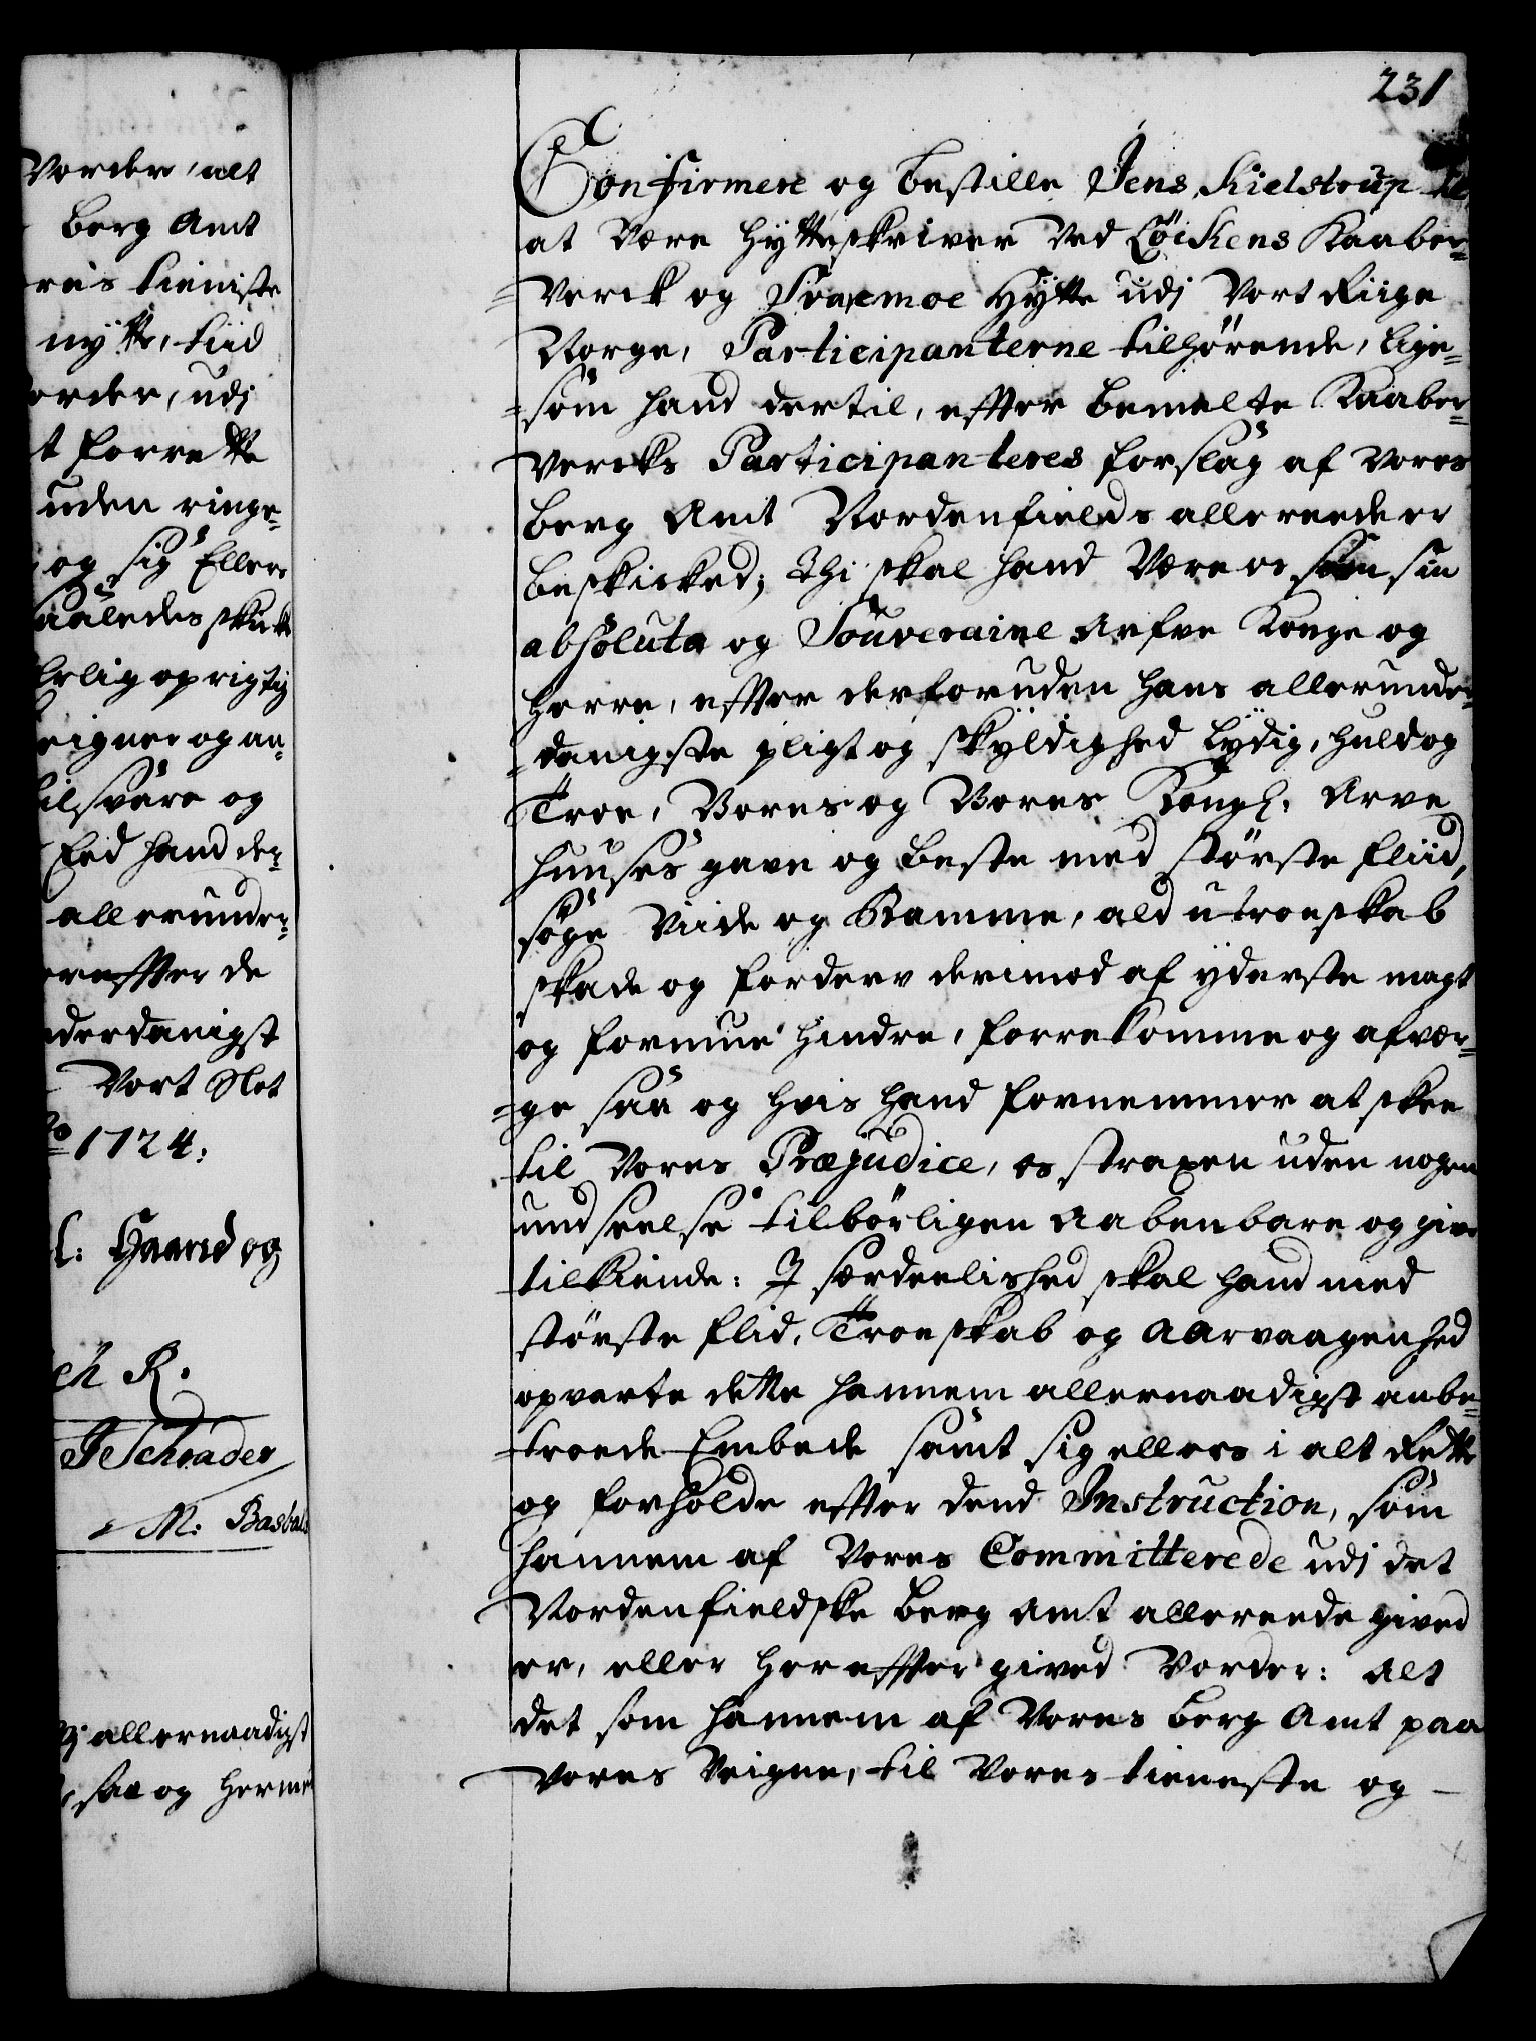 Vorder, alt
berg Amt
res tieniste
nytte, tiid
order, udj
t forrette
uden ringe-
og sig Ellers
saaledes skikke
Erlig oprigtig
eigner og an-
ilsvare og
Eed hand der-
allerunder-
ereffter de
derdanigst
Vort Slot
1724.
l: Haand og
ch R.
JSchrader
M: Basbal
allernaadigst
saa og herme
231
Confirmere og bestille Jens Kielstrup til
at være Hytteskriver Ved Löikens Kaaber-
-Verck og Svaremoe Hytte udj Vort Riige
Norge, Participanterne tilhörende, lige-
-som hand dertil, effter bemelte Kaaber-
Vercks Participanteres forslag af Vores
berg Amt Nordenfields allereede er
beskicked; Thi skal hand Være os som sin
absoluta og Souveraine Arfve Konge og
Herre, effter derforuden hans allerunder-
-danigste pligt og skyldighed lydig, huld og
Troe, Vores og Vores Kongl. Arve
Huuses gavn og beste med störste fliid,
söge Viide og Ramme, ald utroeskab
skade og forderv derimod af yderste magt
og formue hindre, forrekomme og afvær-
-ge saa og hvis hand fornemmer at skee
til Vores Præjudice, os straxen uden nogen
undseelse tilbörligen Aabenbare og give
tilkiende: J særdeelished skal hand med
störste flid, Troeskab og Aarvaagenhed
opvarte dette hannem allernaadigst anbe-
-troede Embede samt sig ellers i alt Rette
og forholde effter dend Instruction, som
hannem af Vores Committerede udj det
Nordenfieldske berg Amt allereede gived
er, eller hereffter gived Vorder: Alt
det som hannem af Vores berg Amt paa
Vores Veigne, til Vores tieneste og